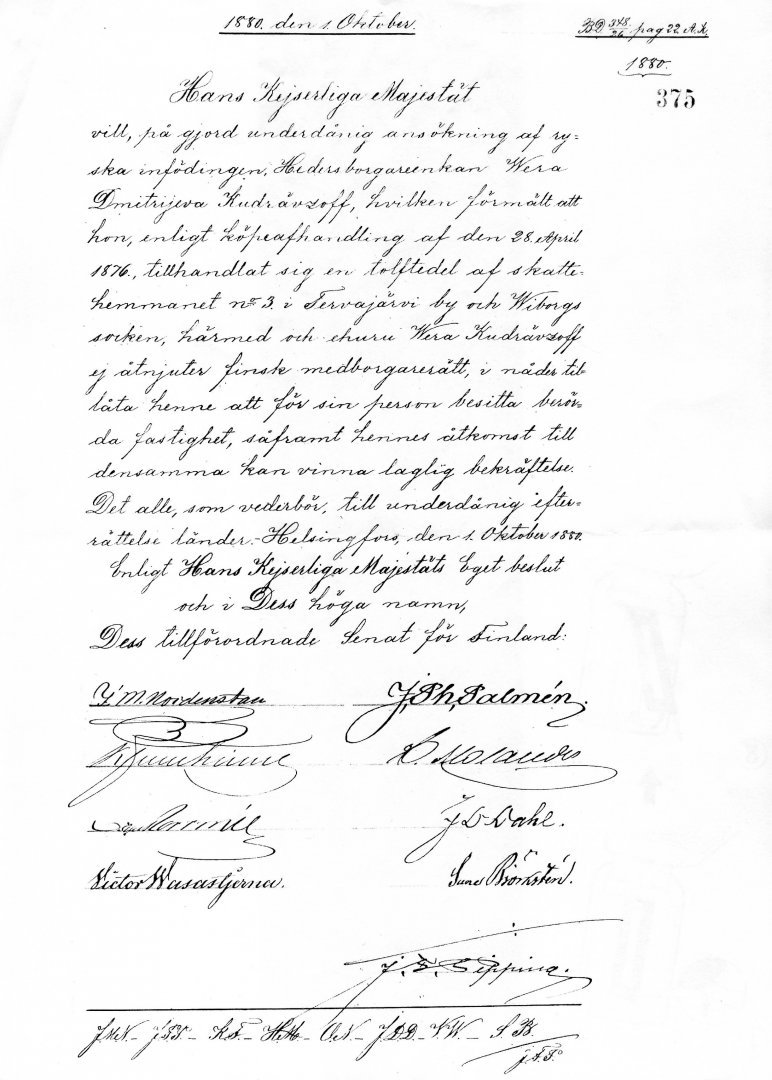 1880. den 1. Oktober.
BD 348/26 pag 22 A.K.
1880.
375
Hans Kejserliga Majestät
vill, på gjord underdånig ansökning af ry-
ska infödingen, Hedersborgareenkan Wera
Dmitrijeva Kudrävzoff, hvilken förmält att
hon, enligt köpeafhandling af den 28. April
1876, tillhandlat sig en tolftedel af skatte-
hemmanet no 3. i Tervajärvi by och Wiborgs
socken, härmed och ehuru Wera Kudrävzoff
ej åtnjuter finsk medborgarerätt, i nåder till-
låta henne att för sin person besitta berör-
da fastighet, såframt hennes åtkomst till
densamma kan vinna laglig bekräftelse.
Det alle, som vederbör, till underdånig efter-
rättelse länder. Helsingfors, den 1. Oktober 1880.
Enligt Hans Kejserliga Majestäts Eget beslut
och i Dess höga namn,
Dess tillförordnade Senat för Finland:
J. M. Nordenstam
J. Ph. Palmén.
J. D. Dahl.
Victor Wasastjerna.
Sune Björkstén.